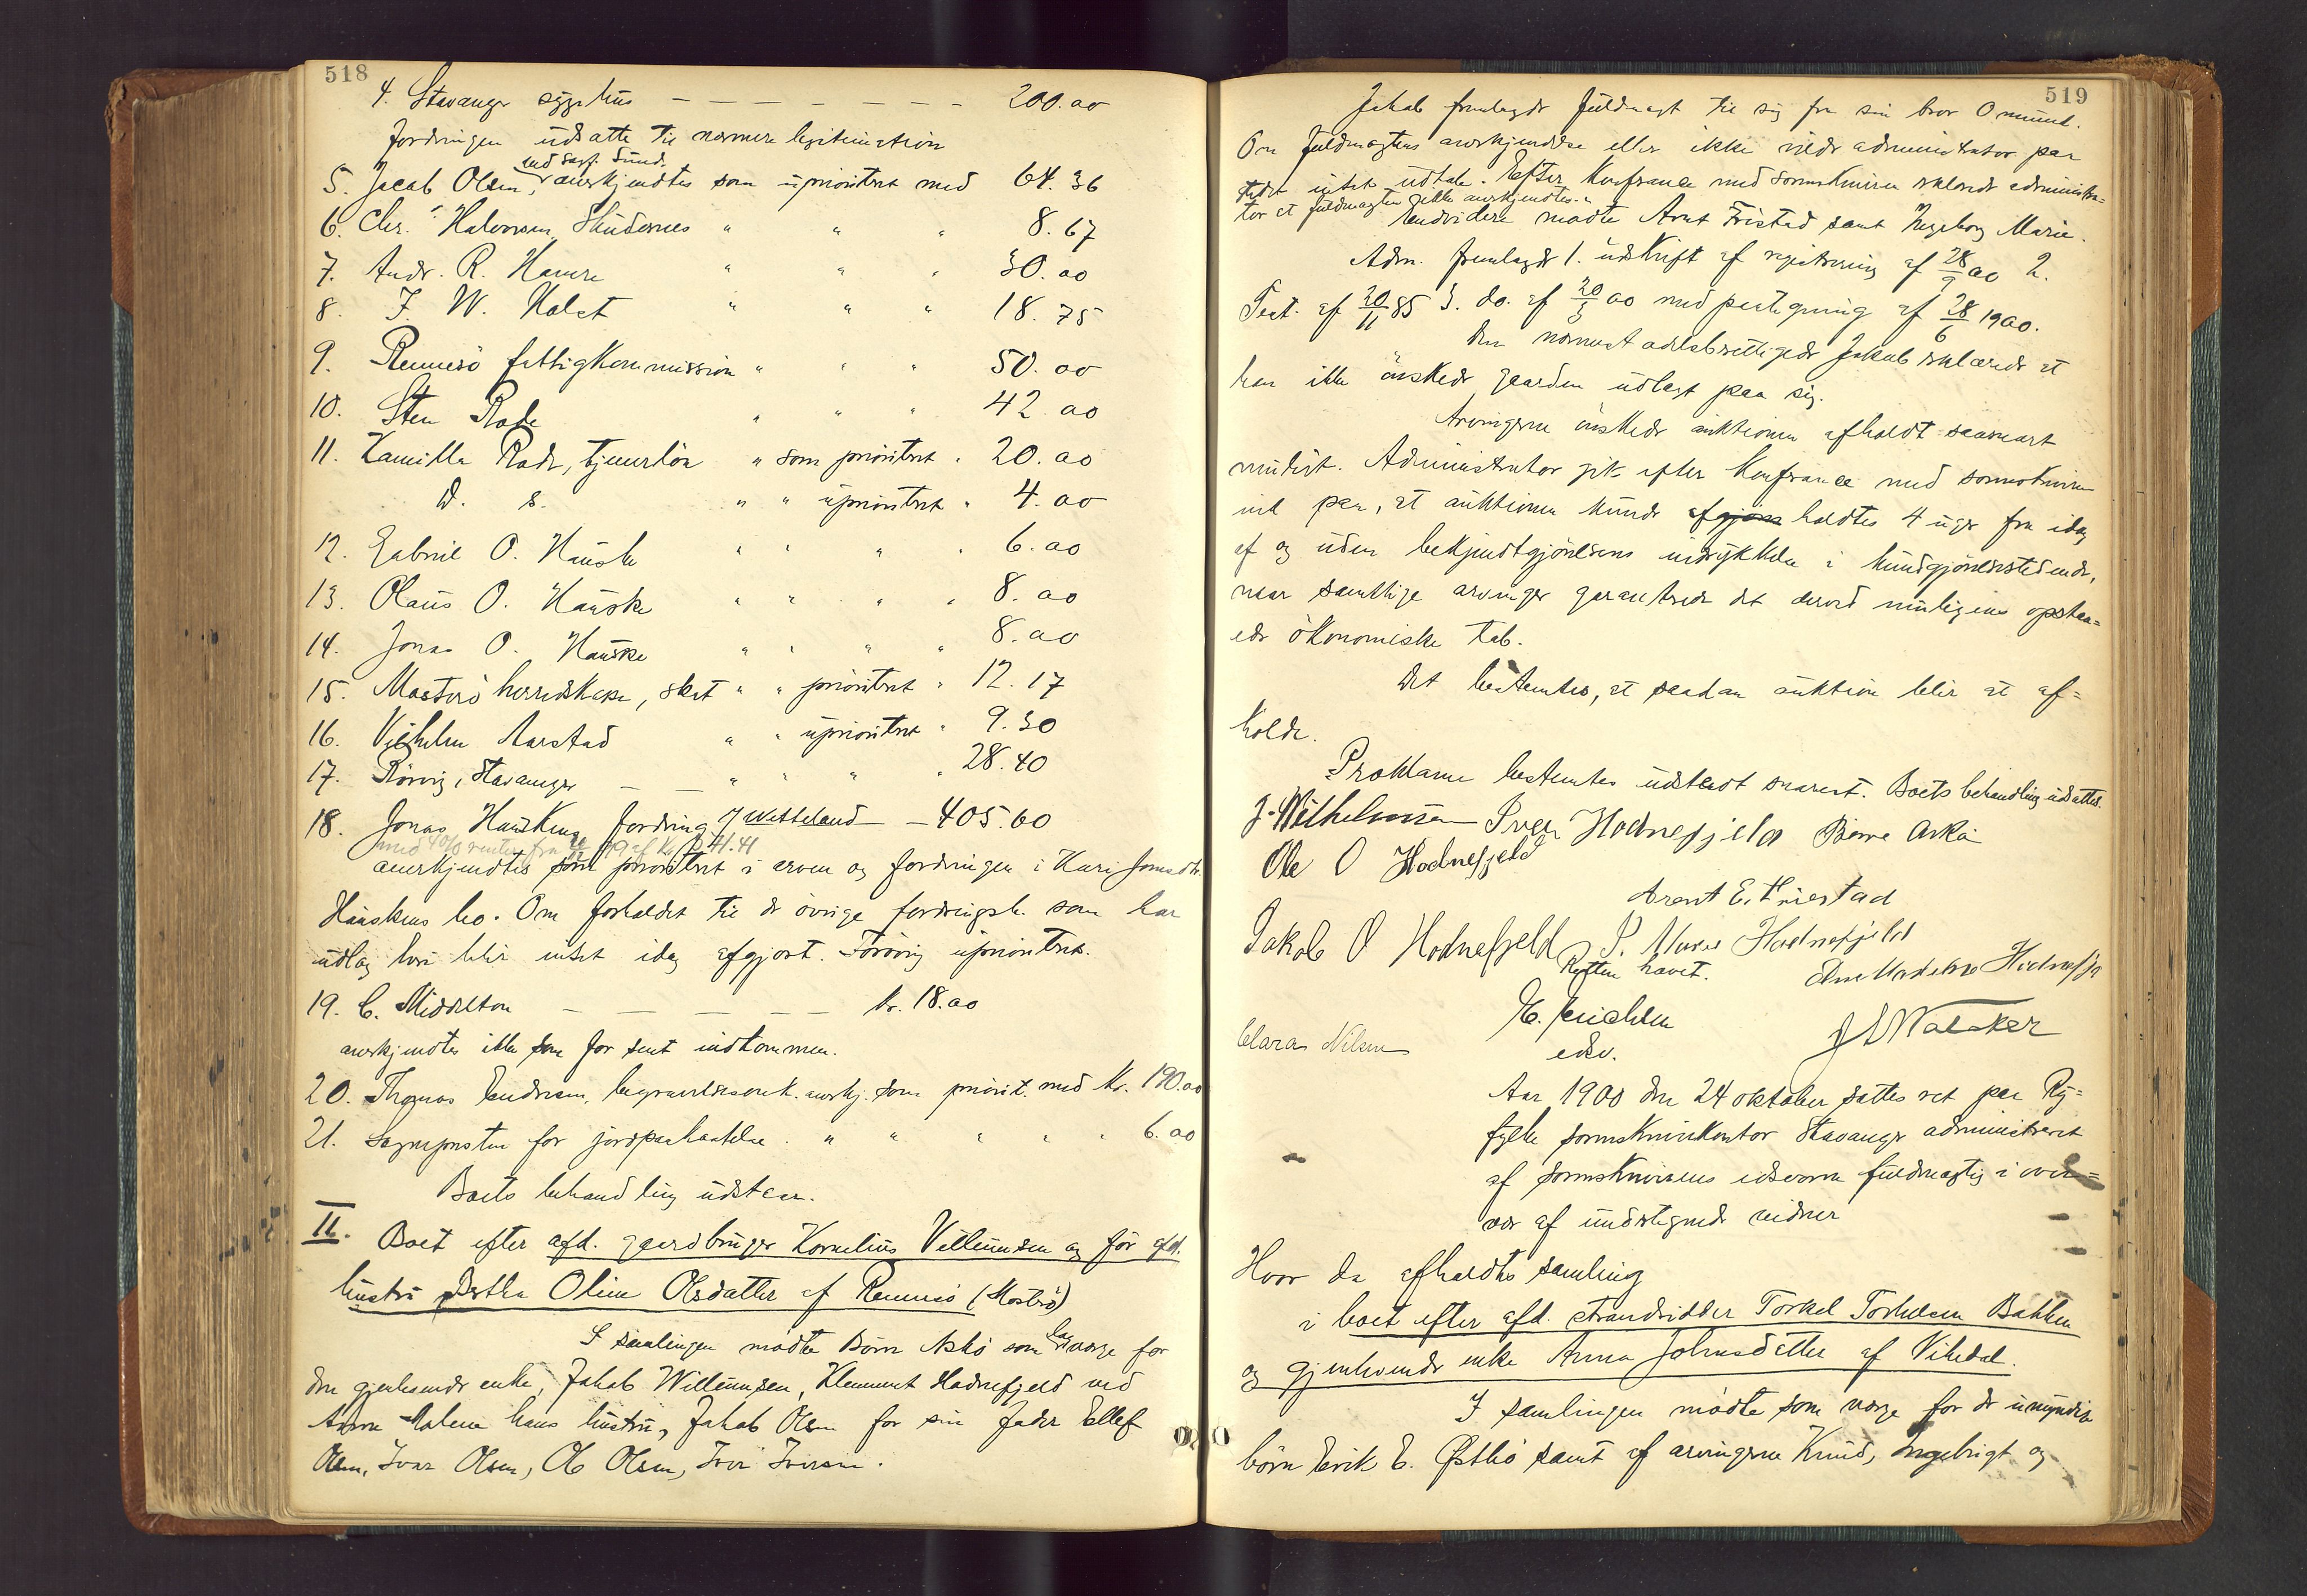 518
4. Stavanger sygehus — — — — — — — 200.00
Fordringen udsatte til nærmere legitimation
ved sagf. Sund.
5. Jacob Olsen, anerkjendtes som uprioritert med 64.36
6. Chr. Halvorsen, Skudesnes " " " 8.67
7. Andr. R. Hamre " " " 30.00
8. J. W. Holst " " " 18.75
9. Rennesö fattigkommission " " " 50.00
10. Sten Rode " " " 42.00
11. Kamilla Rode, tjenerlön " som prioritert " 20.00
D. s. " " uprioritert " 4.00
12. Gabriel O. Hauske " " " " 6.00
13. Olaus O. Hauske " " " " 8.00
14. Jonas O. Hauske " " " " 8.00
15. Mosterö herredskasse, skat " " prioritert " 12.17
16. Vilhelm Aarstad " " uprioritert " 9.30
17. Rörvig, Stavanger — — " " " " 28.40
18. Jonas Hauskens fordring — 405.60
med 4% renter fra
anerkjendtes som prioritert i arven og fordringen i Kari Jonsdtr.
Hauskens bo. Om forholdet til de övrige fordringsh. som har
udlæg heri blir intet idag afgjort. Forövrig uprioritert.
19. C. Middelton — — — — — kr. 18.00
anerkjendtes ikke som for sent indkommen.
20. Thomas Endresen, begravelsesomk. anerkj. som priorit. med Kr. 190.00
21. Sognepresten for jordpaakastelse " " " " " 6.00
Boets behandling udsten.
II. Boet efter afd. gaardbruger Kornelius Villumsen og för afd.
hustru Bertha Oline Olsdatter af Rennesö (Mosterö)
I samlingen mödte Börre Askö som lavværge for
den gjenlevende enke, Jakob Willumsen, Klemmet Hodnefjeld ved
Anne Malene hans hustru, Jakob Olsen for sin fader Ellef
Olsen, Ivar Olsen, Ole Olsen, Iver Iversen.
519
Jakob fremlagde fuldmagt til sig fra sin bror Omund.
Om fuldmagtens anerkjendelse eller ikke vilde administrator paa
stedet intet udtale. Efter konferance med sorenskriveren erklærede administra=
tor at fuldmagten ikke anerkjendtes.
Endvidere mödte Arnt Tristad samt Ingeborg Marie.
Adm. fremlagde 1. udskrift af registrering af 28/9 00 2.
Test. af 20/11 85 3. do. af 20/3 00 med paategning af 28/6 1900.
Den nærmest aadelsberettigede Jakob erklærede at
han ikke önskede gaarden udlagt paa sig.
Arvingerne önskede auktionen afholdt snarest
muligt. Administrator gik efter konferance med sorenskriveren
ind paa, at auktionen kunde afgjöres holdtes 4 uger fra idag
af og uden bekjendtgjörelsens indrykkelse i kundgjörelsestidende,
naar samtlige arvinger garanterede det derved muligens opstaa=
ede ökonomiske tab.
Det bestemtes, at saadan auktion blir at af=
holde.
Proklama bestemtes udstedt snarest. Boets behandling udsattes.
J. Wilhelmsen Iver Hodnefjeld Börre Askö
Ole O Hodnefjeld
Arent E. Triestad
Jakob O Hodnefjeld I. Marie Hodnefjeld
Retten hævet. Ane Malene Hodnefje
edsv.
Clara Nilsen
Aar 1900 den 24 oktober sattes ret paa Ry=
fylke sorenskriverkontor Stavanger administreret
af sorenskriverens edsvorne fuldmægtig i over=
vær af undertegnede vidner
Hvor da afholdtes samling
i boet efter afd. strandsidder Torkel Torkelsen Bakken
og gjenlevende enke Anna Johnsdatter af Vikedal.
I samlingen mödte som værge for de umyndige
börn Erik E. Østbö samt af arvingerne Knud, Ingebrigt og